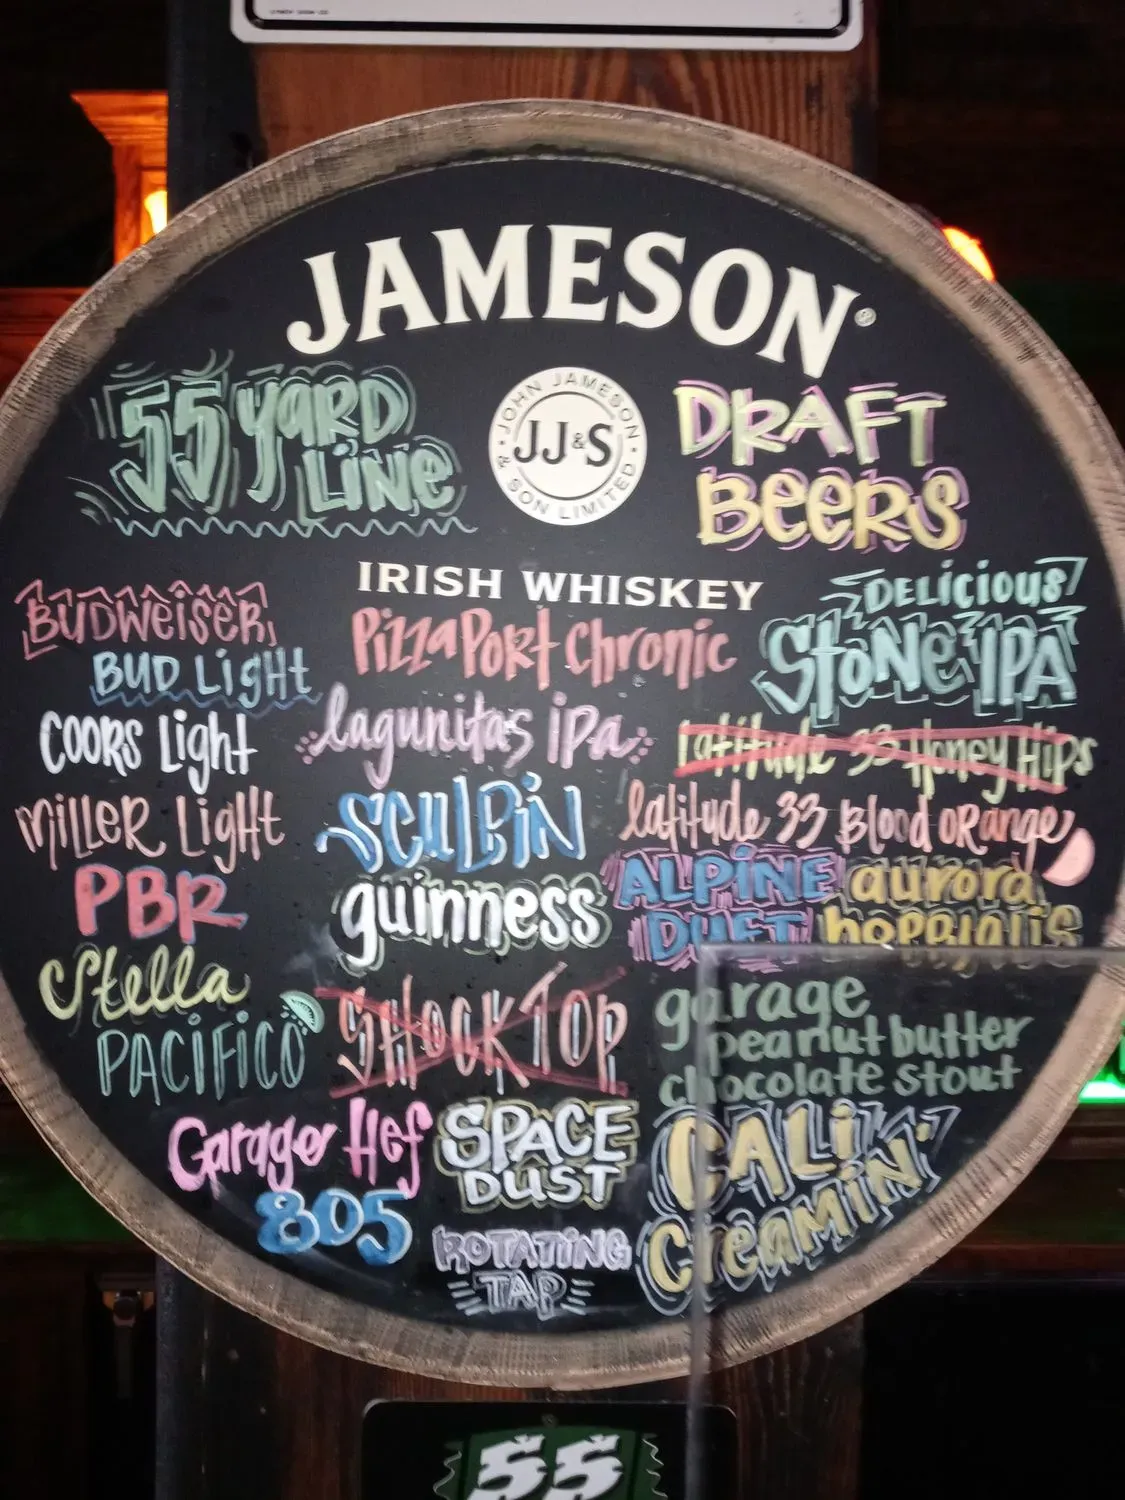 JAMESON®
55 YARD
LINE
JOHN JAMESON
JJ&S
& SON LIMITED
DRAFT
BEERS
IRISH WHISKEY
BUDWEISER
BUD Light
COORS Light
MILLER Light
PBR
Stella
PACIFICO
Garage Hef
805
PizzaPort Chronic
lagunitas ipa
SCULPIN
guinness
SHOCK TOP
SPACE
DUST
ROTATING
TAP
DELICIOUS
STONE IPA
Latitude 33 Honey Hips
latitude 33 Blood ORange
ALPINE
DUET
aurora
hoppialis
garage
peanut butter
chocolate stout
CALI
CREAMIN'
55